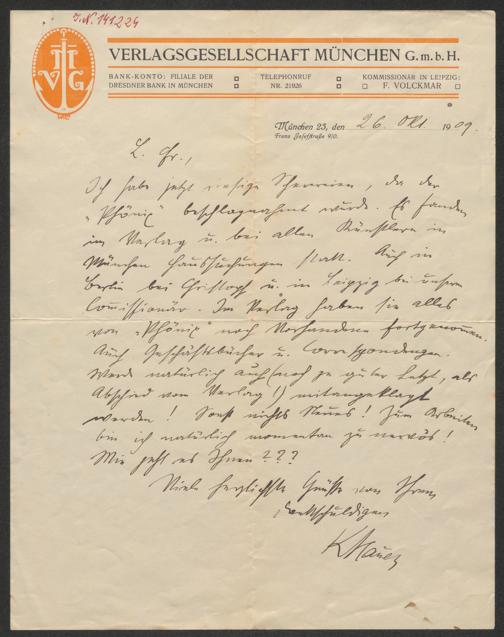 J.N. 141224
M
V G
VERLAGSGESELLSCHAFT MÜNCHEN G.m.b.H.
BANK-KONTO: FILIALE DER DRESDNER BANK IN MÜNCHEN
TELEPHONRUF NR. 21926
KOMMISSIONÄR IN LEIPZIG: F. VOLCKMAR
München 23, den 26. Okt. 1909.
Franz Josefstraße 9/0.
L. Fr.,
Ich habe jetzt riesige Scherereien, da der
„Phönix" beschlagnahmt wurde. Es fanden
im Verlag u. bei allen Künstlern in
München Haussuchungen statt. Auch in
Berlin bei u. in Leipzig bei unserm
Commissionär. Im Verlag haben sie alles
von „Phönix" noch Vorhandene fortgenommen.
Auch Geschäftsbücher u. Correspondenzen.
Werde natürlich auch (noch zu guter Letzt, als
Abschied vom Verlag!) mitangeklagt
werden! Sonst nichts Neues! Zum Arbeiten
bin ich natürlich momentan zu nervös!
Wie geht es Ihnen???
Viele herzlichste Grüsse von Ihrem